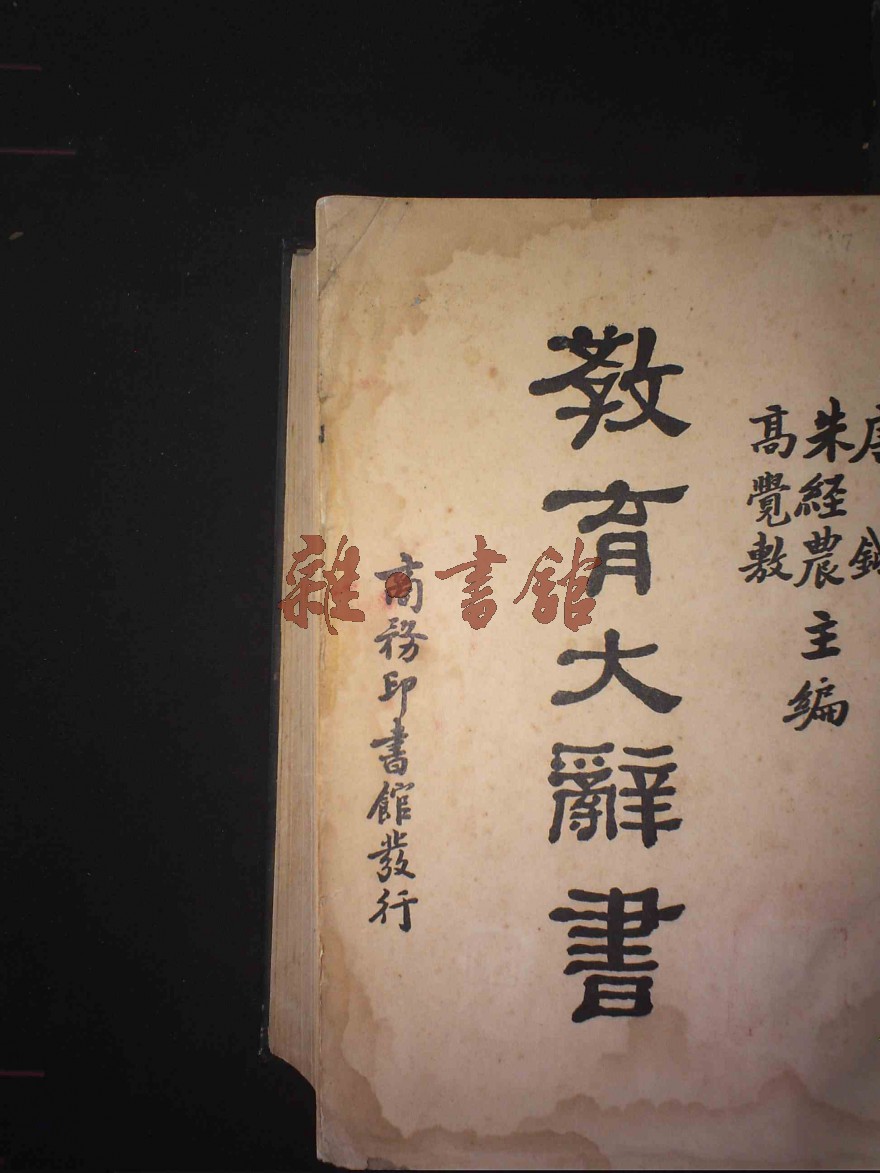 朱經農
高覺敷
主編
教育大辭書
商務印書館發行
雜·書館